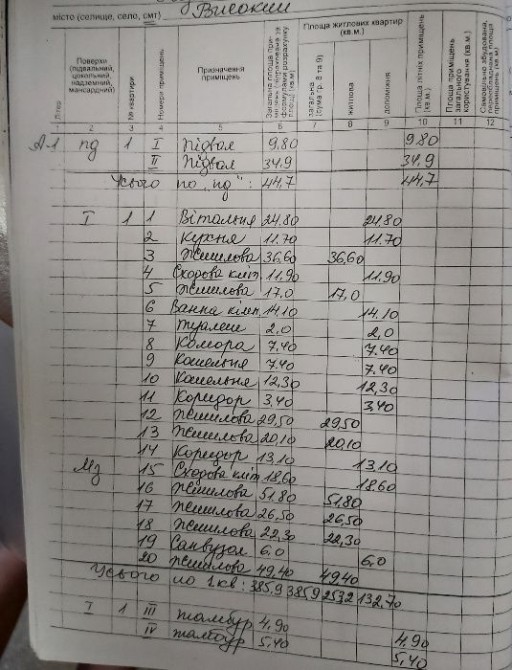 місто (селище, село, смт) Високий
Літер
Поверхи (підвальний, цокольний, надземний, мансардний)
№ квартири
Номери приміщень
Призначення приміщень
Площа житлових квартир (кв.м.)
загальна (сума гр. 8 та 9)
житлова
допоміжна
Площа літніх приміщень (кв.м.)
Площа приміщень загального користування (кв.м.)
1 2 3 4 5 6 7 8 9 10 11 12
А-1 пд 1 I підвал 9.80 9.80
II підвал 34.9 34.9
Усього по "пд": 44,7 44,7
I 1 1 Вітальня 24.80 24.80
2 Кухня 11.70 11.70
3 Житлова 36,60 36,60
4 Сходова кліт. 11,90 11,90
5 Житлова 17,0 17,0
6 Ванна кімн. 14,10 14,10
7 Туалет 2,0 2,0
8 Комора 7.40 7.40
9 Котельня 7.40 7.40
10 Котельня 12,30 12,30
11 Коридор 3,40 3,40
12 Житлова 29,50 29,50
13 Житлова 20,10 20,10
14 Коридор 13,10 13,10
Мз 15 Сходова кліт. 18,60 18.60
16 Житлова 51,80 51,80
17 Житлова 26,50 26,50
18 Житлова 22,30 22,30
19 Санвузол 6,0 6,0
20 Житлова 49,40 49,40
Усього по 1 кв: 385,9 385,9 253,2 132,70
I 1 III тамбур 4,90 4,90
IV тамбур 5,40 5,40